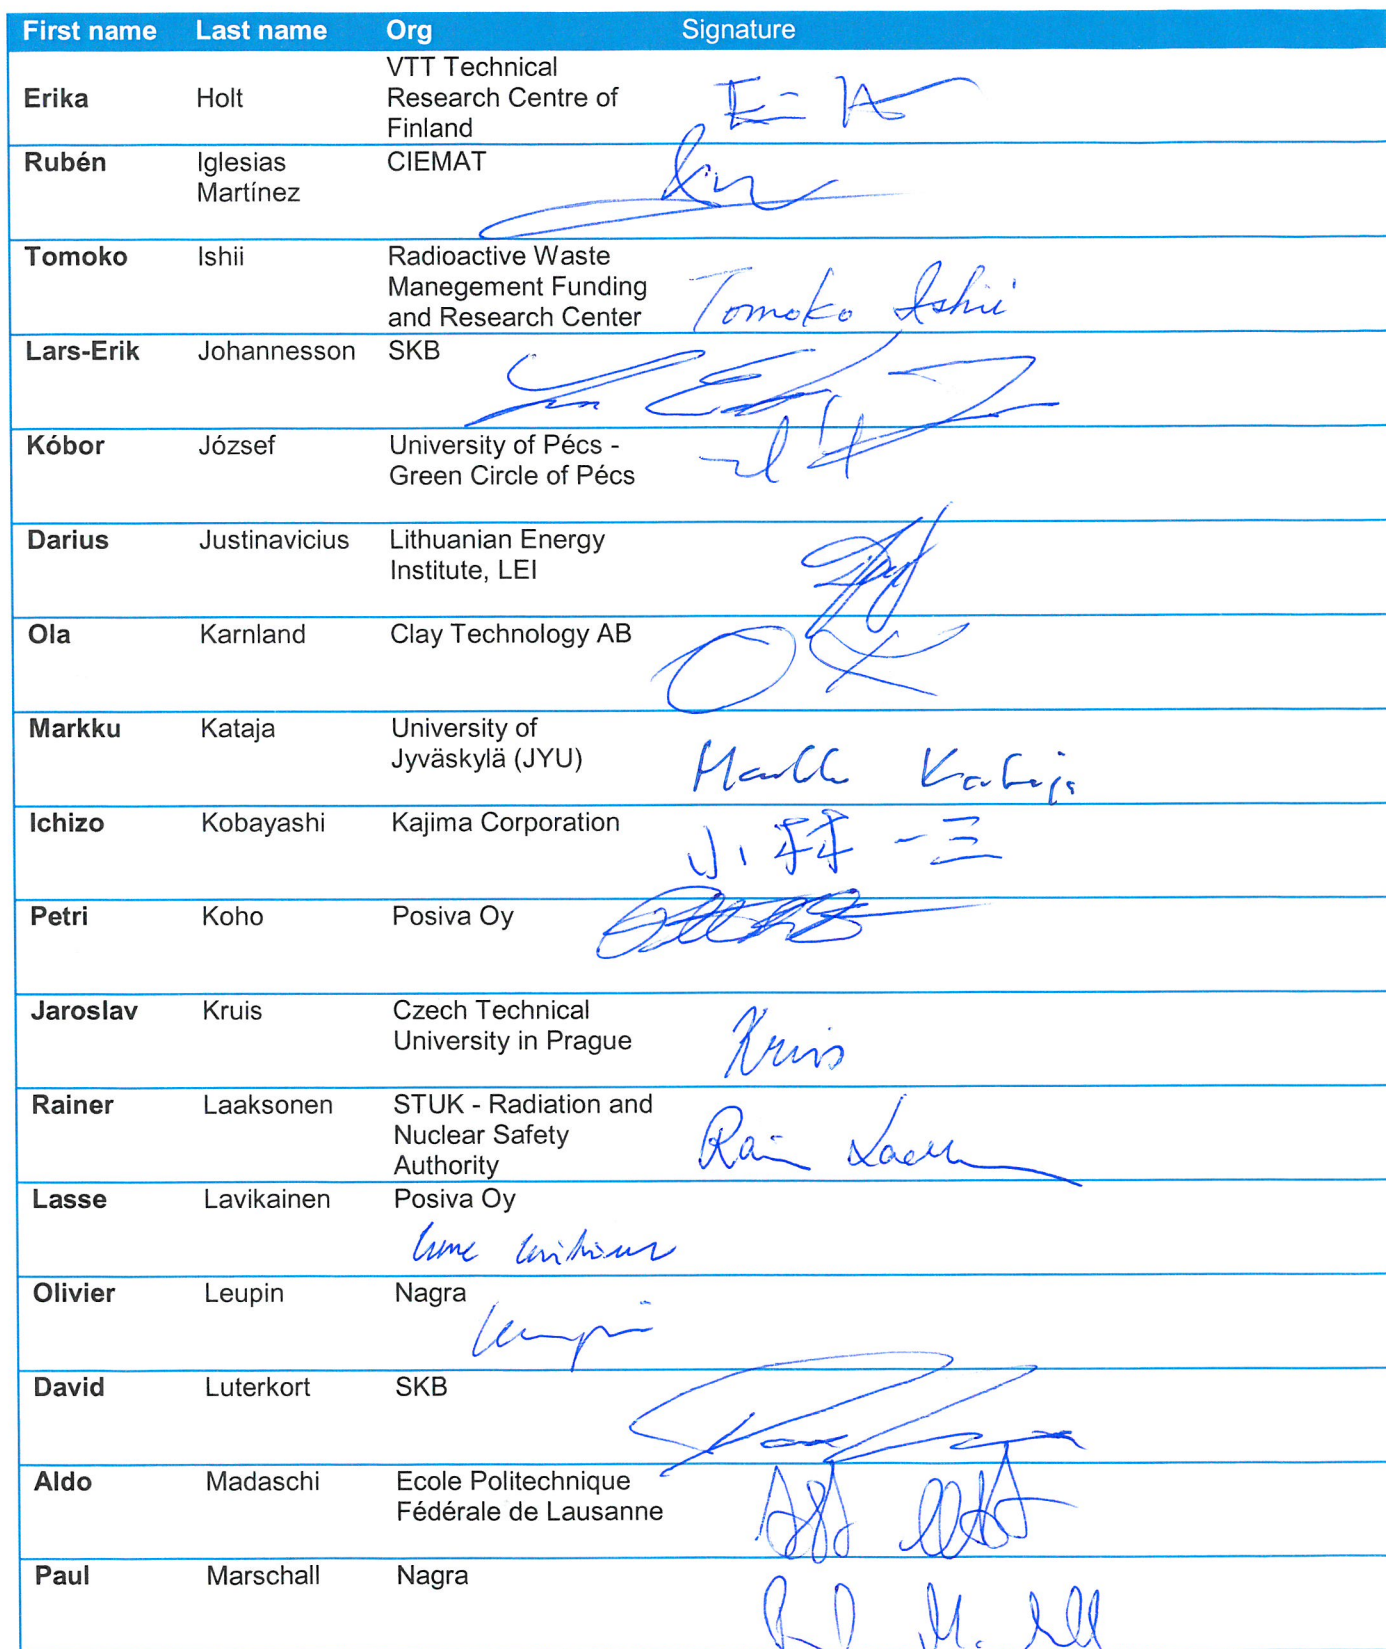 First name Last name Org Signature
Erika Holt VTT Technical
Research Centre of
Finland
Rubén Iglesias CIEMAT
Martínez
Tomoko Ishii Radioactive Waste
Manegement Funding
and Research Center
Tomoko Ishii
Lars-Erik Johannesson SKB
Kóbor József University of Pécs -
Green Circle of Pécs
Darius Justinavicius Lithuanian Energy
Institute, LEI
Ola Karnland Clay Technology AB
OK
Markku Kataja University of
Jyväskylä (JYU)
Kataja
Ichizo Kobayashi Kajima Corporation
小林 一三
Petri Koho Posiva Oy
Jaroslav Kruis Czech Technical
University in Prague
Kruis
Rainer Laaksonen STUK - Radiation and
Nuclear Safety
Authority
Lasse Lavikainen Posiva Oy
Olivier Leupin Nagra
Leupin
David Luterkort SKB
Aldo Madaschi Ecole Politechnique
Fédérale de Lausanne
Paul Marschall Nagra